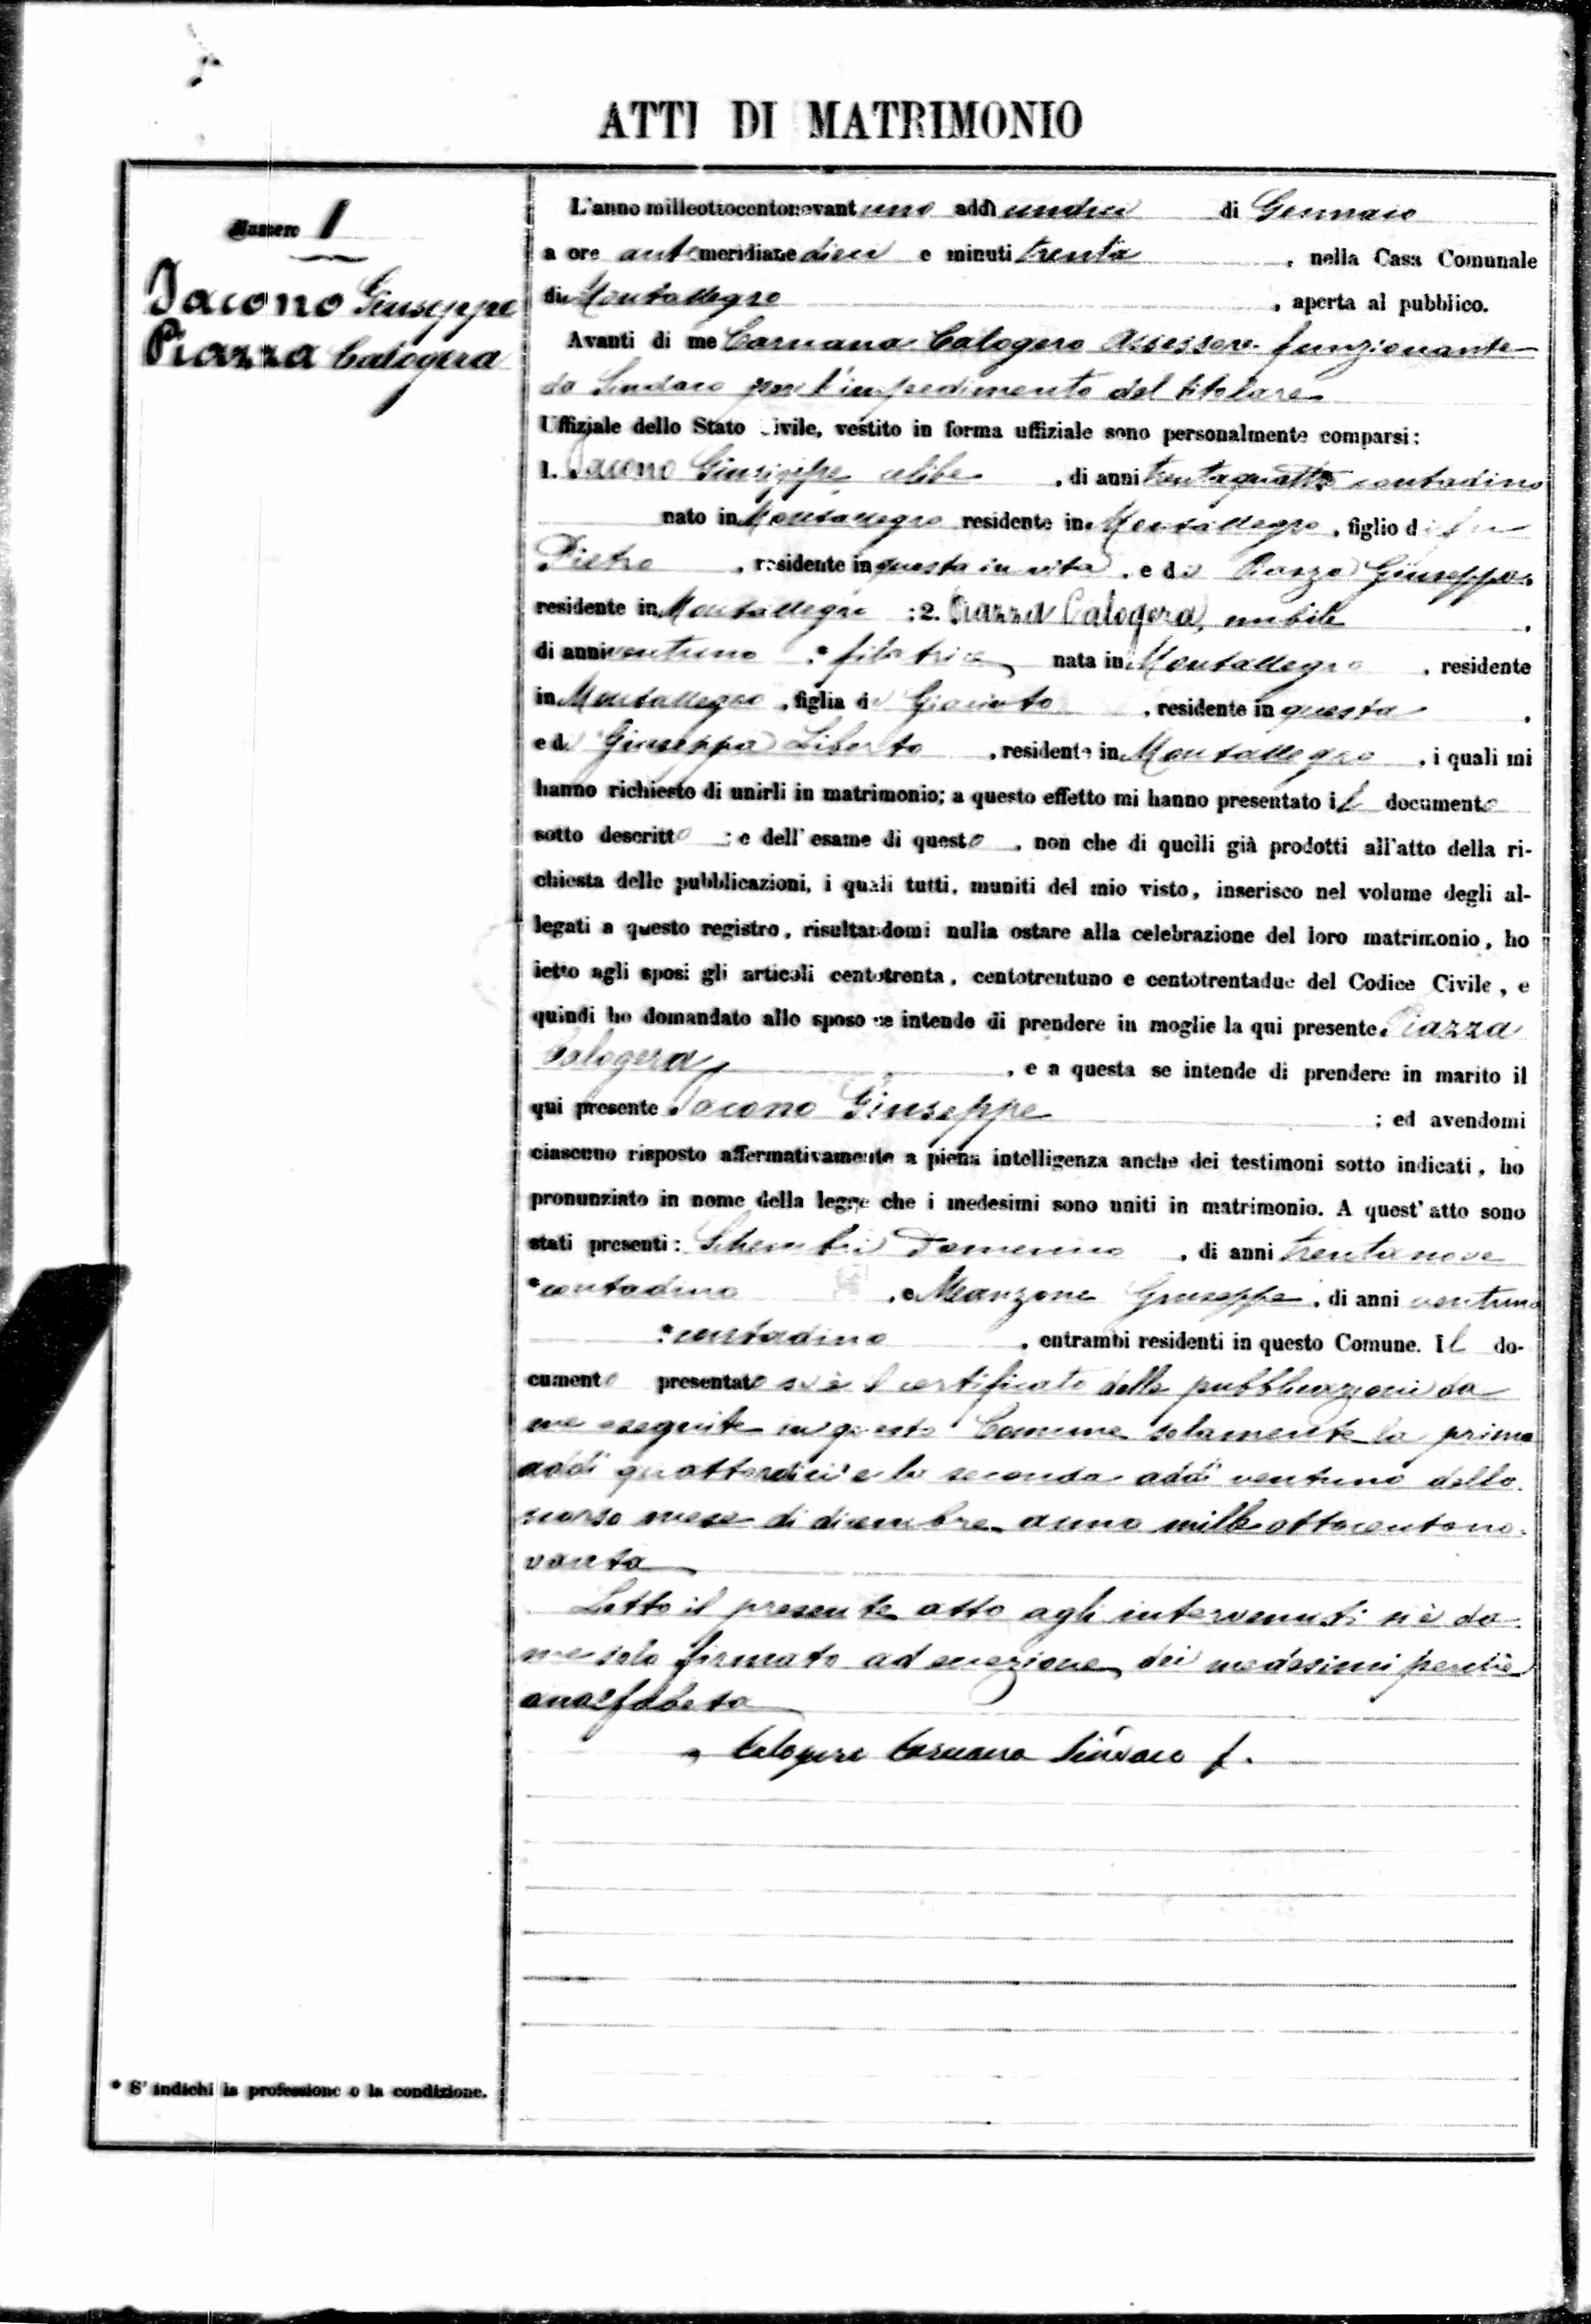 ATTI DI MATRIMONIO
Numero 1
Iacono Giuseppe
Piazza Calogera
L'anno milleottocentonovantuno addì undici di Gennaio
a ore antimeridiane dieci e minuti trenta , nella Casa Comunale
di Montallegro , aperta al pubblico.
Avanti di me Caruana Calogero Assessore funzionante
da Sindaco per l'impedimento del titolare
Uffiziale dello Stato Civile, vestito in forma uffiziale sono personalmente comparsi:
1. Iacono Giuseppe celibe , di anni trentaquattro contadino
nato in Montallegro residente in Montallegro , figlio di fu
Pietro , residente in questa in vita , e di Giuseppa
residente in Montallegro : 2. Piazza Calogera, nubile ,
di anni ventuno * filatrice nata in Montallegro , residente
in Montallegro , figlia di Giacinto , residente in questa ,
e di Giuseppa Liberto , residente in Montallegro , i quali mi
hanno richiesto di unirli in matrimonio; a questo effetto mi hanno presentato il documento
sotto descritto ; e dell'esame di questo , non che di quelli già prodotti all'atto della ri-
chiesta delle pubblicazioni, i quali tutti, muniti del mio visto, inserisco nel volume degli al-
legati a questo registro, risultandomi nulla ostare alla celebrazione del loro matrimonio, ho
letto agli sposi gli articoli centotrenta, centotrentuno e centotrentadue del Codice Civile, e
quindi ho domandato allo sposo se intende di prendere in moglie la qui presente Piazza
Calogera , e a questa se intende di prendere in marito il
qui presente Iacono Giuseppe ; ed avendomi
ciascuno risposto affermativamente a piena intelligenza anche dei testimoni sotto indicati, ho
pronunziato in nome della legge che i medesimi sono uniti in matrimonio. A quest'atto sono
stati presenti: Schembri Domenico , di anni trentanove
*contadino , e Manzone Giuseppe , di anni ventuno
*contadino , entrambi residenti in questo Comune. Il do-
cumento presentato si è il certificato delle pubblicazioni da
me eseguite in questo Comune solamente la prima
addì quattordici e la seconda addì ventuno dello
scorso mese di dicembre anno mille ottocentono-
vanta
Letto il presente atto agli intervenuti si è da
me solo firmato ad eccezione dei medesimi perchè
analfabeta
Calogero Caruana Sindaco f.
* S' indichi la professione o la condizione.